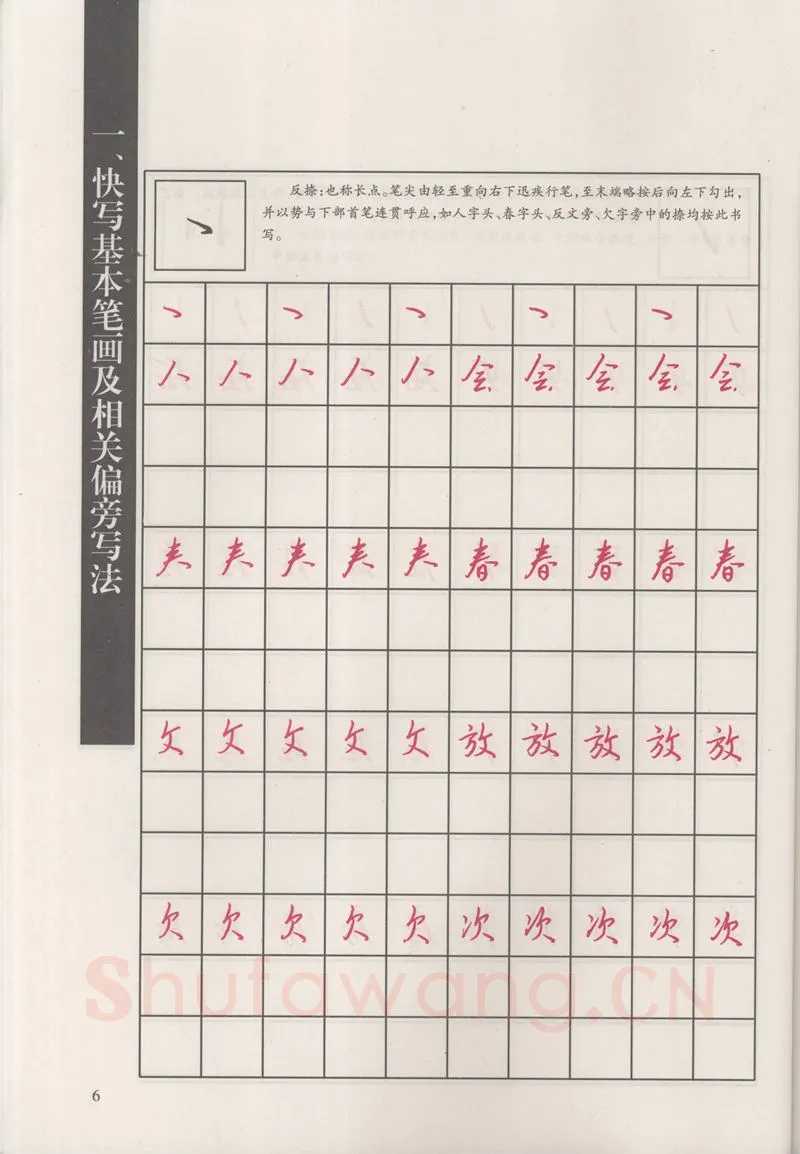 一、快写基本笔画及相关偏旁写法
反捺：也称长点。笔尖由轻至重向右下迅疾行笔，至末端略按后向左下勾出，
并以势与下部首笔连贯呼应，如人字头、春字头、反文旁、欠字旁中的捺均按此书
写。
人 人 人 人 人 会 会 会 会 会
𡗗 𡗗 𡗗 𡗗 𡗗 春 春 春 春 春
攵 攵 攵 攵 攵 放 放 放 放 放
欠 欠 欠 欠 欠 次 次 次 次 次
Shufawang.CN
6